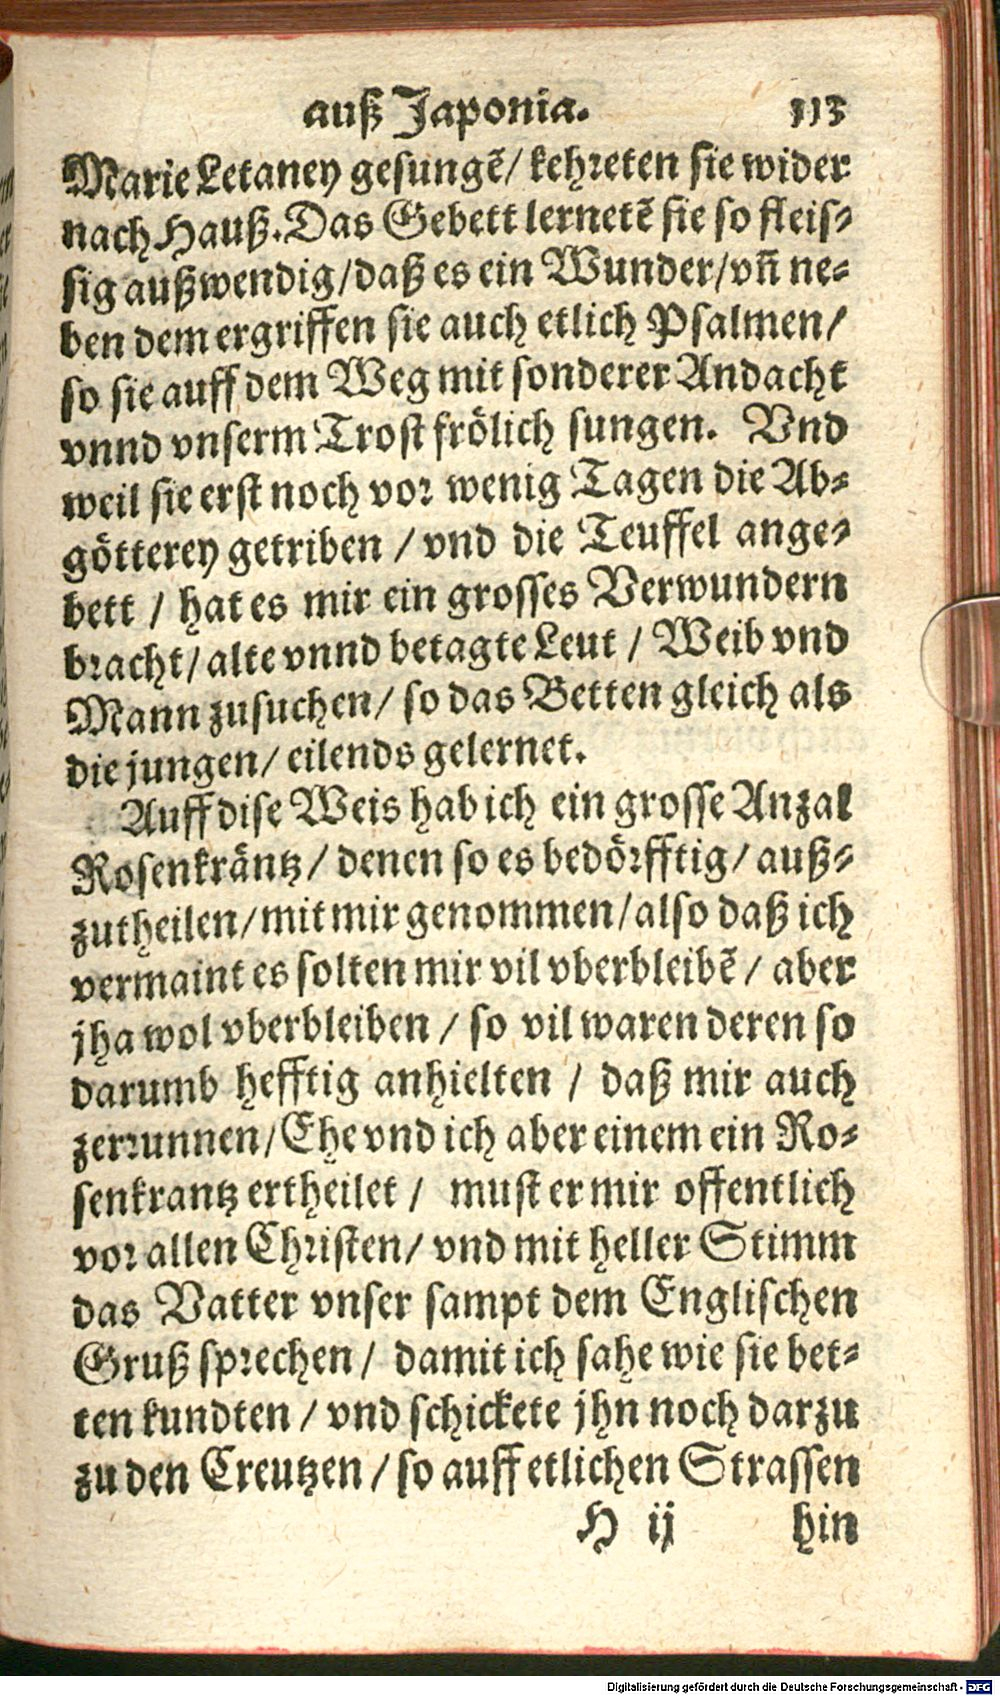 auß Japonia. 113
Marie Letaney gesungẽ/ kehreten sie wider
nach Hauß. Das Gebett lernetẽ sie so fleis-
sig außwendig/ daß es ein Wunder/ vñ ne-
ben dem ergriffen sie auch etlich Psalmen/
so sie auff dem Weg mit sonderer Andacht
vnnd vnserm Trost frölich sungen. Vnd
weil sie erst noch vor wenig Tagen die Ab-
götterey getriben / vnd die Teuffel ange-
bett / hat es mir ein grosses Verwundern
bracht/ alte vnnd betagte Leut / Weib vnd
Mann zusuchen/ so das Betten gleich als
die jungen/ eilends gelernet.
Auff dise Weis hab ich ein grosse Anzal
Rosenkräntz/ denen so es bedörfftig/ auß-
zutheilen/ mit mir genommen/ also daß ich
vermaint es solten mir vil vberbleibẽ / aber
jha wol vberbleiben / so vil waren deren so
darumb hefftig anhielten / daß mir auch
zerrunnen/ Ehe vnd ich aber einem ein Ro-
senkrantz ertheilet / must er mir offentlich
vor allen Christen/ vnd mit heller Stimm
das Vatter vnser sampt dem Englischen
Gruß sprechen/ damit ich sahe wie sie bet-
ten kundten / vnd schickete jhn noch darzu
zu den Creutzen / so auff etlichen Strassen
H ij hin
Digitalisierung gefördert durch die Deutsche Forschungsgemeinschaft - DFG